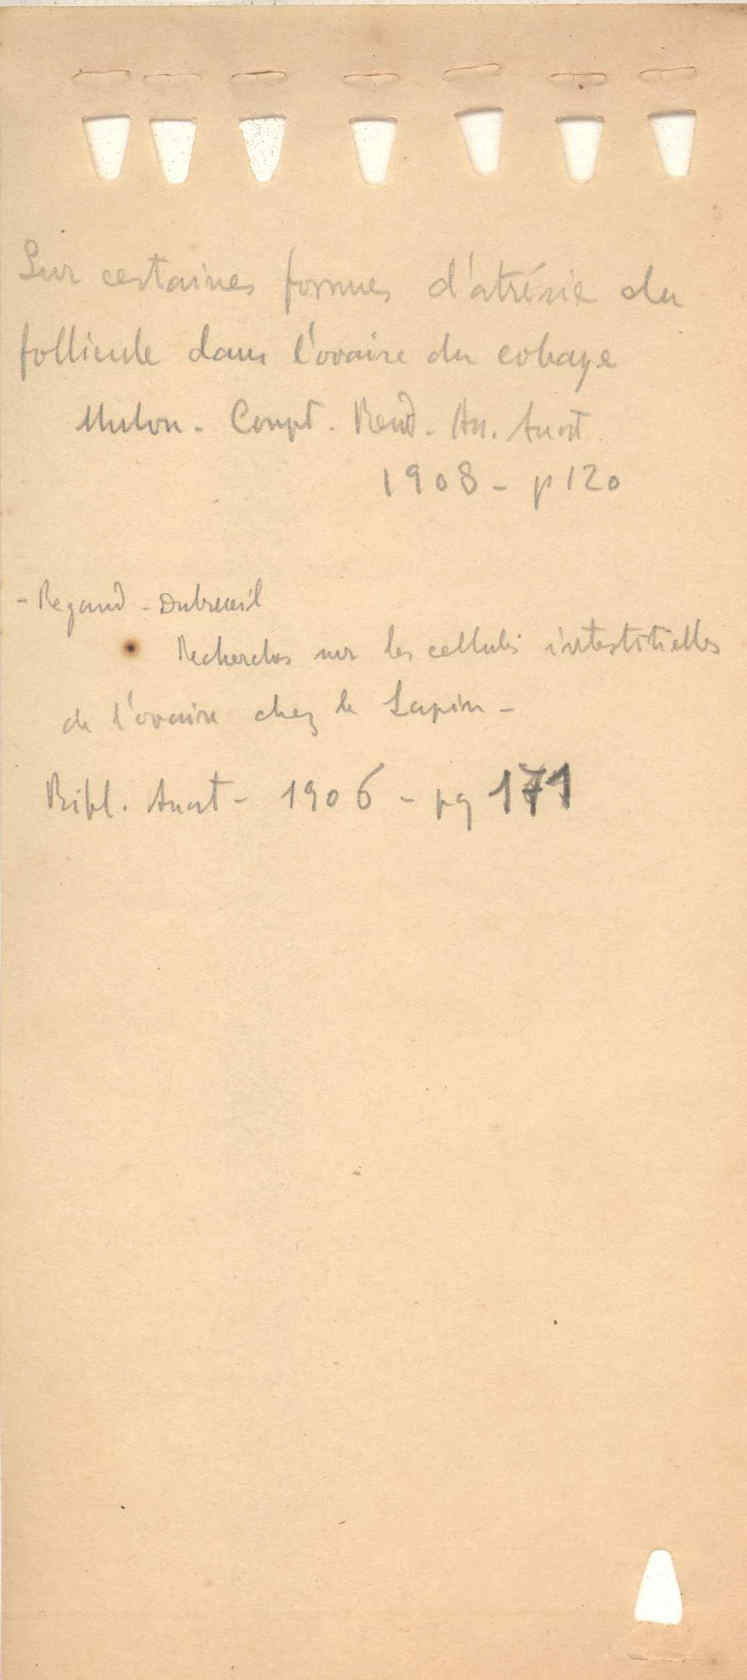 Sur certaines formes d'atrésie du
follicule dans l'ovaire du cobaye
Mulon - Compt. Rend - As. Anat
1908 - p 120
- Regaud - Dubreuil
Recherches sur les cellules interstitielles
de l'ovaire chez le Lapin -
Bibl. Anat - 1906 - pg 171